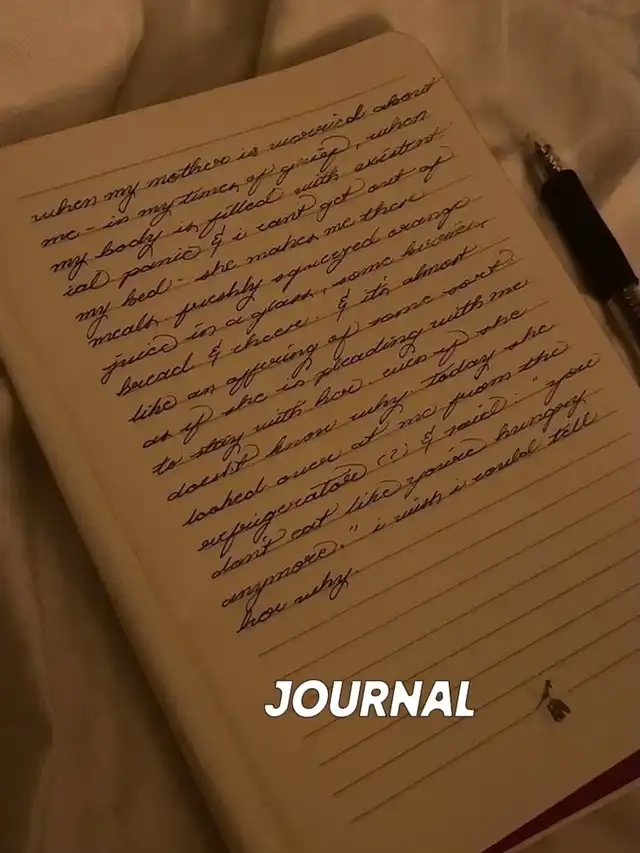 when my mother is worried about
me - in my times of grief, when
my body is filled with existent
ial panic & i cant get out of
my bed - she makes me these
meals. freshly squeezed orange
juice in a glass, some berries,
bread & cheese. & it's almost
like an offering of some sort.
as if she is pleading with me
to stay with her. even if she
doesn't know why. today she
looked over at me from the
refrigerator (?) & said: "you
don't eat like you're hungry
anymore." i wish i could tell
her why.
JOURNAL